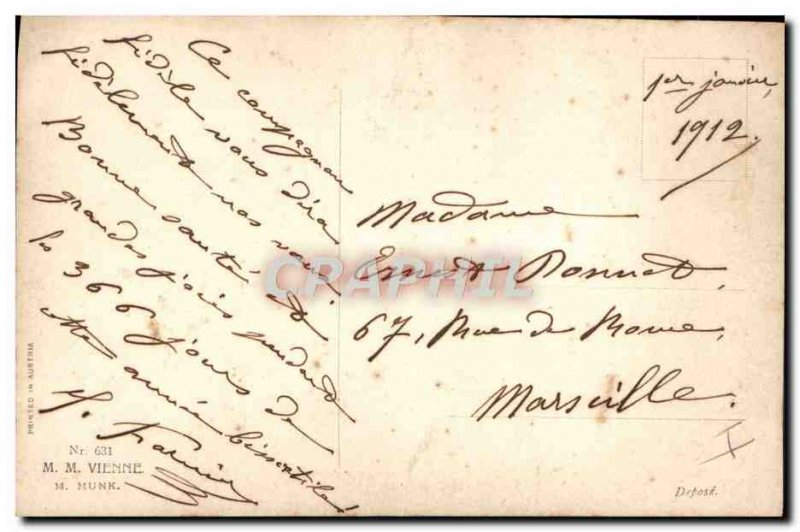 Ce compagnon
fidèle vous dira
fidèlement nos vœux
Bonne santé et
grandes joies pendant
les 366 jours de
cette année bissextile!
1er janvier,
1912.
Madame
Ernest Bonnet,
67, Rue de Rome,
Marseille.
CRAPHIL
PRINTED IN AUSTRIA
Nr. 631
M. M. VIENNE
M. MUNK.
Déposé.